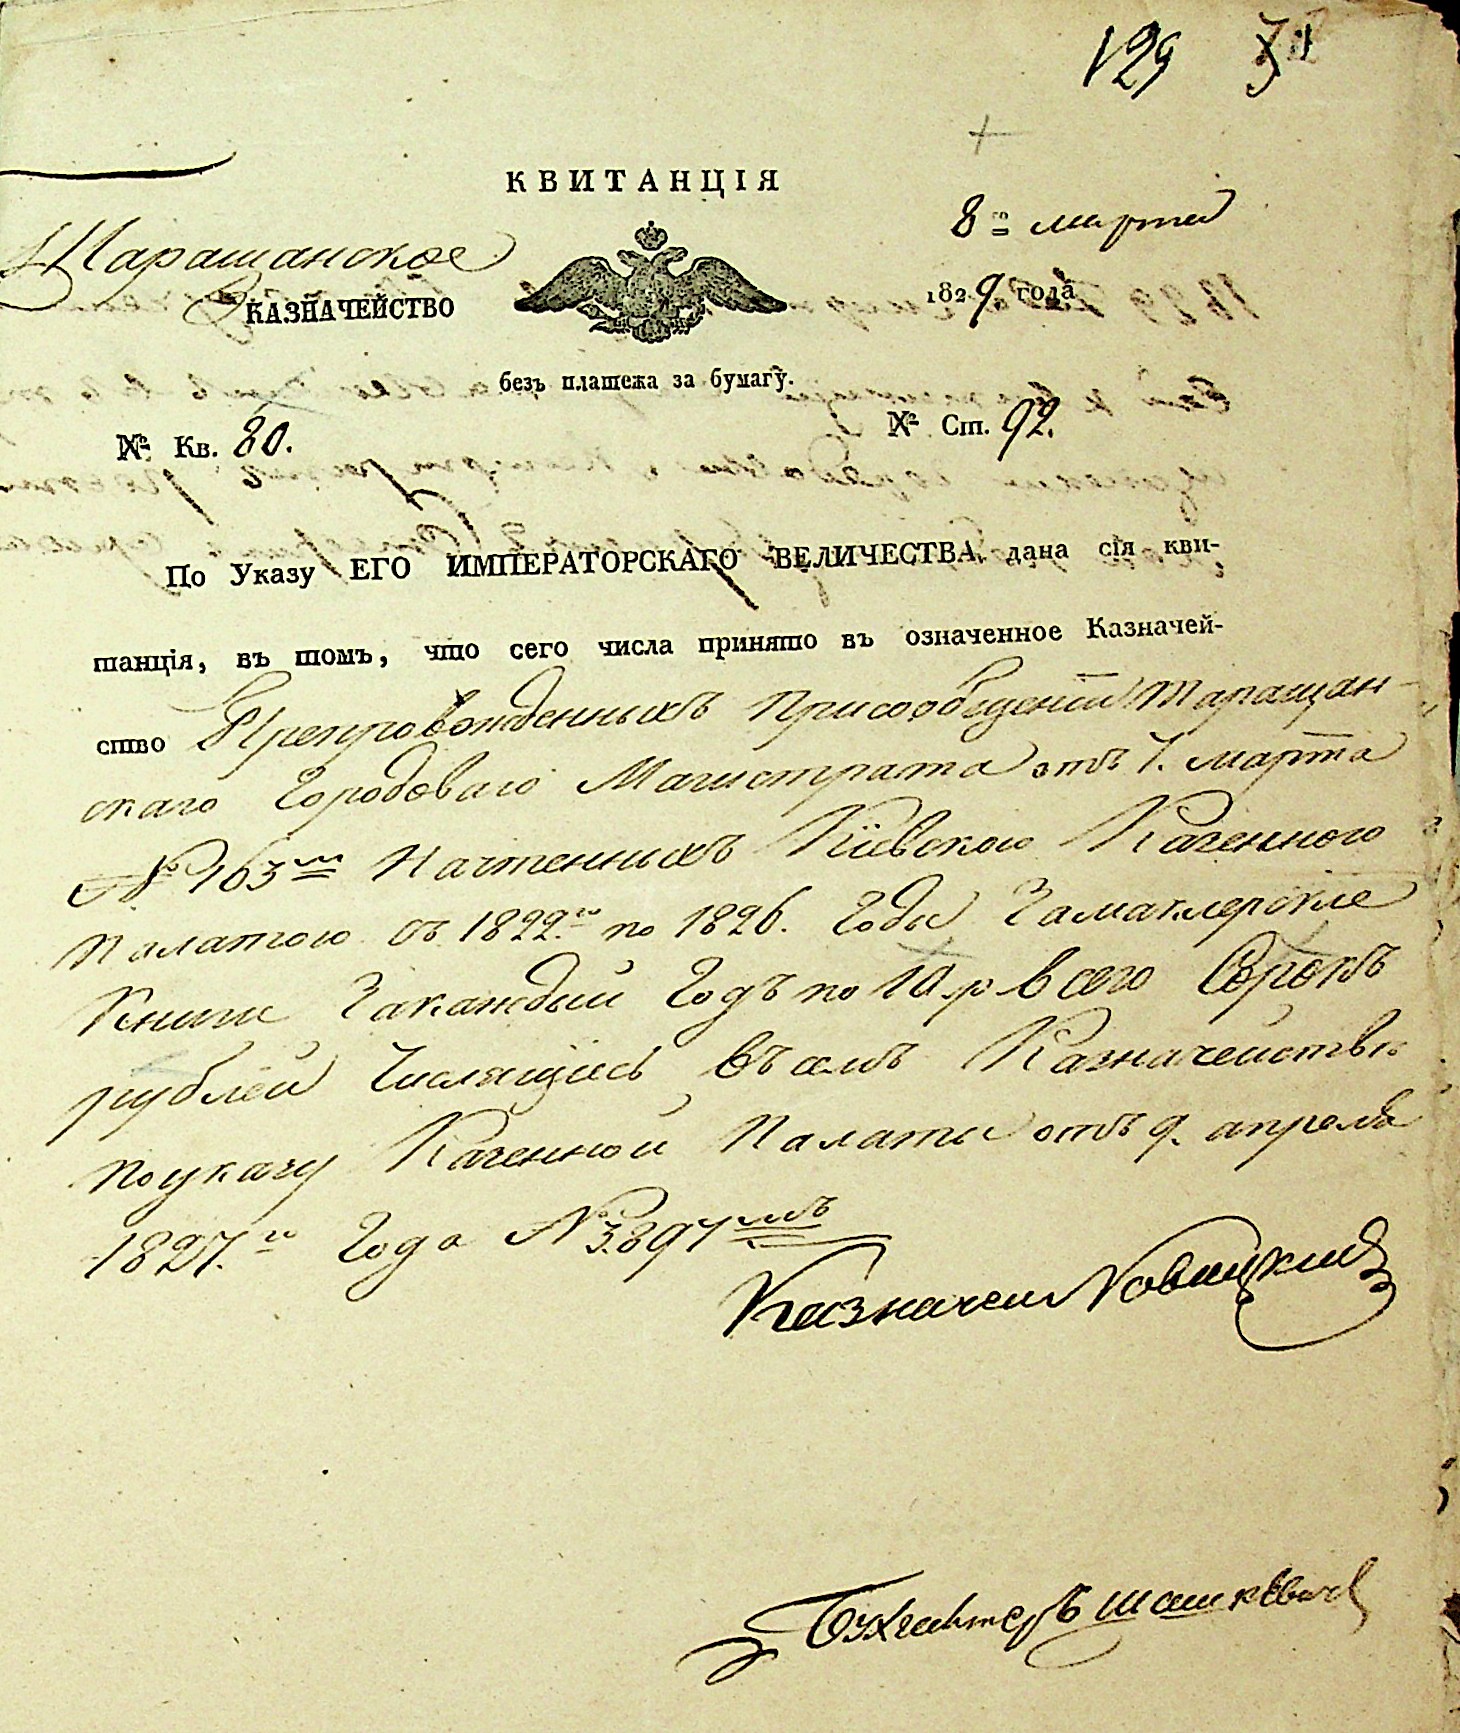 129
КВИТАНЦІЯ
Таращанское
КАЗНАЧЕЙСТВО
8го марта
1829 года
безъ платежа за бумагу.
№ Кв. 80.
№ Ст. 92.
По Указу ЕГО ИМПЕРАТОРСКАГО ВЕЛИЧЕСТВА, дана сія кви-
танція, въ томъ, что сего числа принято въ означенное Казначей-
ство Препровожденныхъ Присообщеніи Таращан-
скаго Городоваго Магистрата отъ 7. марта
№ 163м Начтенныхъ Кіевскою Казенною
Палатою съ 1822.го по 1826. Годы Замаклерскіе
Книги Закаждый Годъ по 10 р всего Сорокъ
рублей Числящіесь въ семъ Казначействѣ
поуказу Казенной Палаты отъ 9. апреля
1827.го Года № 3897мъ
Казначей Новицкий
Бухгалтеръ Шашкевичъ